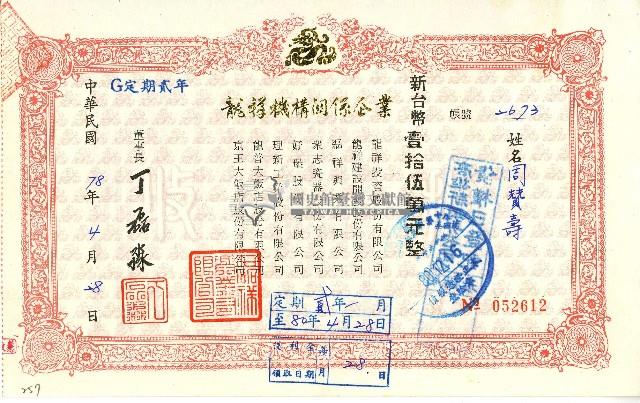 姓名 周贊壽
帳號 2673
新台幣壹拾伍萬元整
龍祥機構關係企業
龍祥投資股份有限公司
龍祥建設開發股份有限公司
磊祥興業有限公司
有限公司
好樂股份有限公司
理新工業股份有限公司
龍普大飯店股份有限公司
京王大飯店股份有限公司
G定期貳年
董事長 丁磊淼
中華民國 78 年 4 月 28 日
國史館臺灣文獻館
№ 052612
定期 貳年 月
至80年4月28日
每月 28. 日
領取日期
257